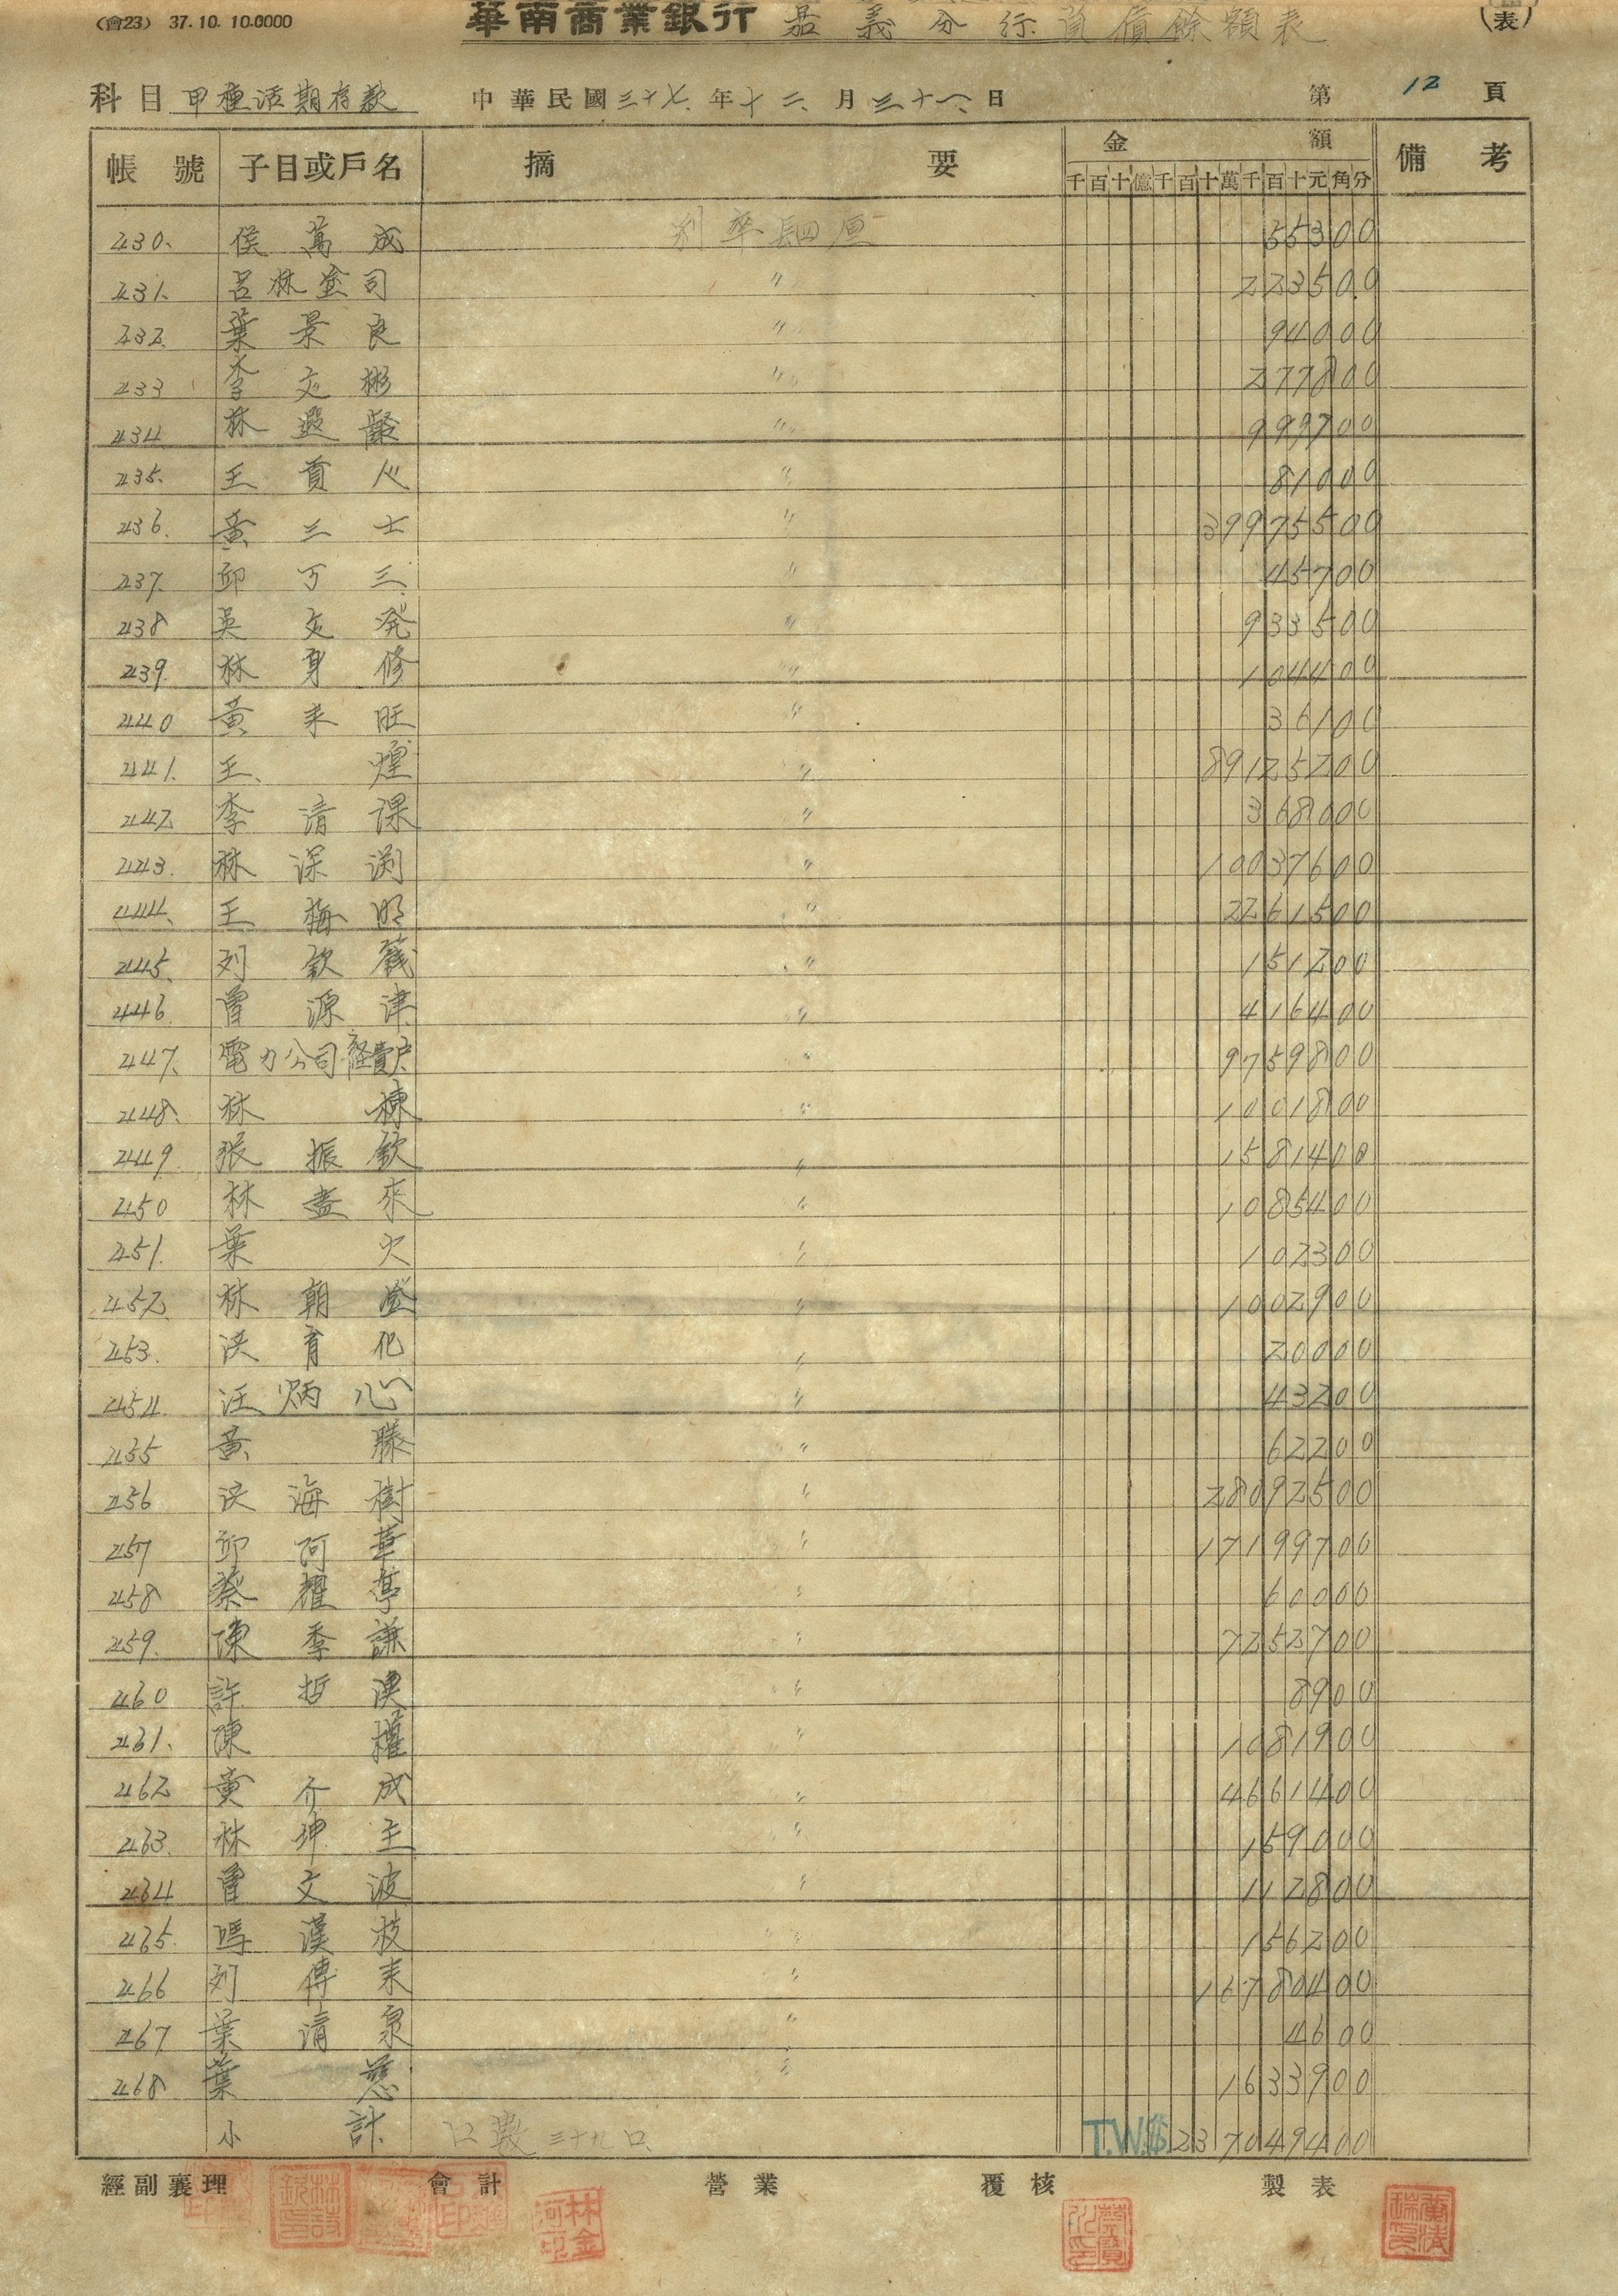 (會23) 37.10. 10.0000
華南商業銀行 嘉義分行 負債餘額表
表
科目 甲種活期存款 中華民國三十七年十二月三十一日 第12頁
帳號 子目或戶名 摘要 金額 備考
千百十億千百十萬千百十元角分
430. 侯萬成 利率 四厘 55300
431. 呂林塗司 〃 223500
432. 葉景良 〃 94000
433 李文彬 〃 277800
434. 林遐齡 〃 999700
435. 王貢 〃 81000
436. 黃三士 〃 39975500
437. 邱丁三 〃 45700
438 吳文発 〃 933500
439. 林身修 〃 104400
440 黃来旺 〃 36100
441. 王煌 〃 89125200
442. 李清課 〃 368000
443. 林深渕 〃 10037600
444. 王梅明 〃 2261500
445. 刘欽 〃 151200
446. 曾源津 〃 416400
447. 電力公司經費戶 〃 9759800
448. 林棟 〃 1001800
449. 張振欽 〃 1581400
450 林盡來 〃 1085400
451. 葉火 〃 102300
452. 林朝澄 〃 1002900
453. 洪育化 〃 20000
454. 汪炳心 〃 43200
455 黃滕 〃 62200
456 洪海樹 〃 28092500
457 邱阿華 〃 17199700
458 蔡耀亭 〃 60000
459. 陳季謙 〃 7252700
460 許哲漢 〃 8900
461. 陳權 〃 1081900
462 黃介成 〃 4661400
463. 林坤玉 〃 159000
464 曾文波 〃 112800
465. 馮漢枝 〃 156200
466 刘傳来 〃 16780400
467 葉清泉 〃 4600
468 葉慈 〃 1633900
小計 口數三十九口 T.W.$ 237049400
經副襄理 會計 營業 覆核 製表
林金河印